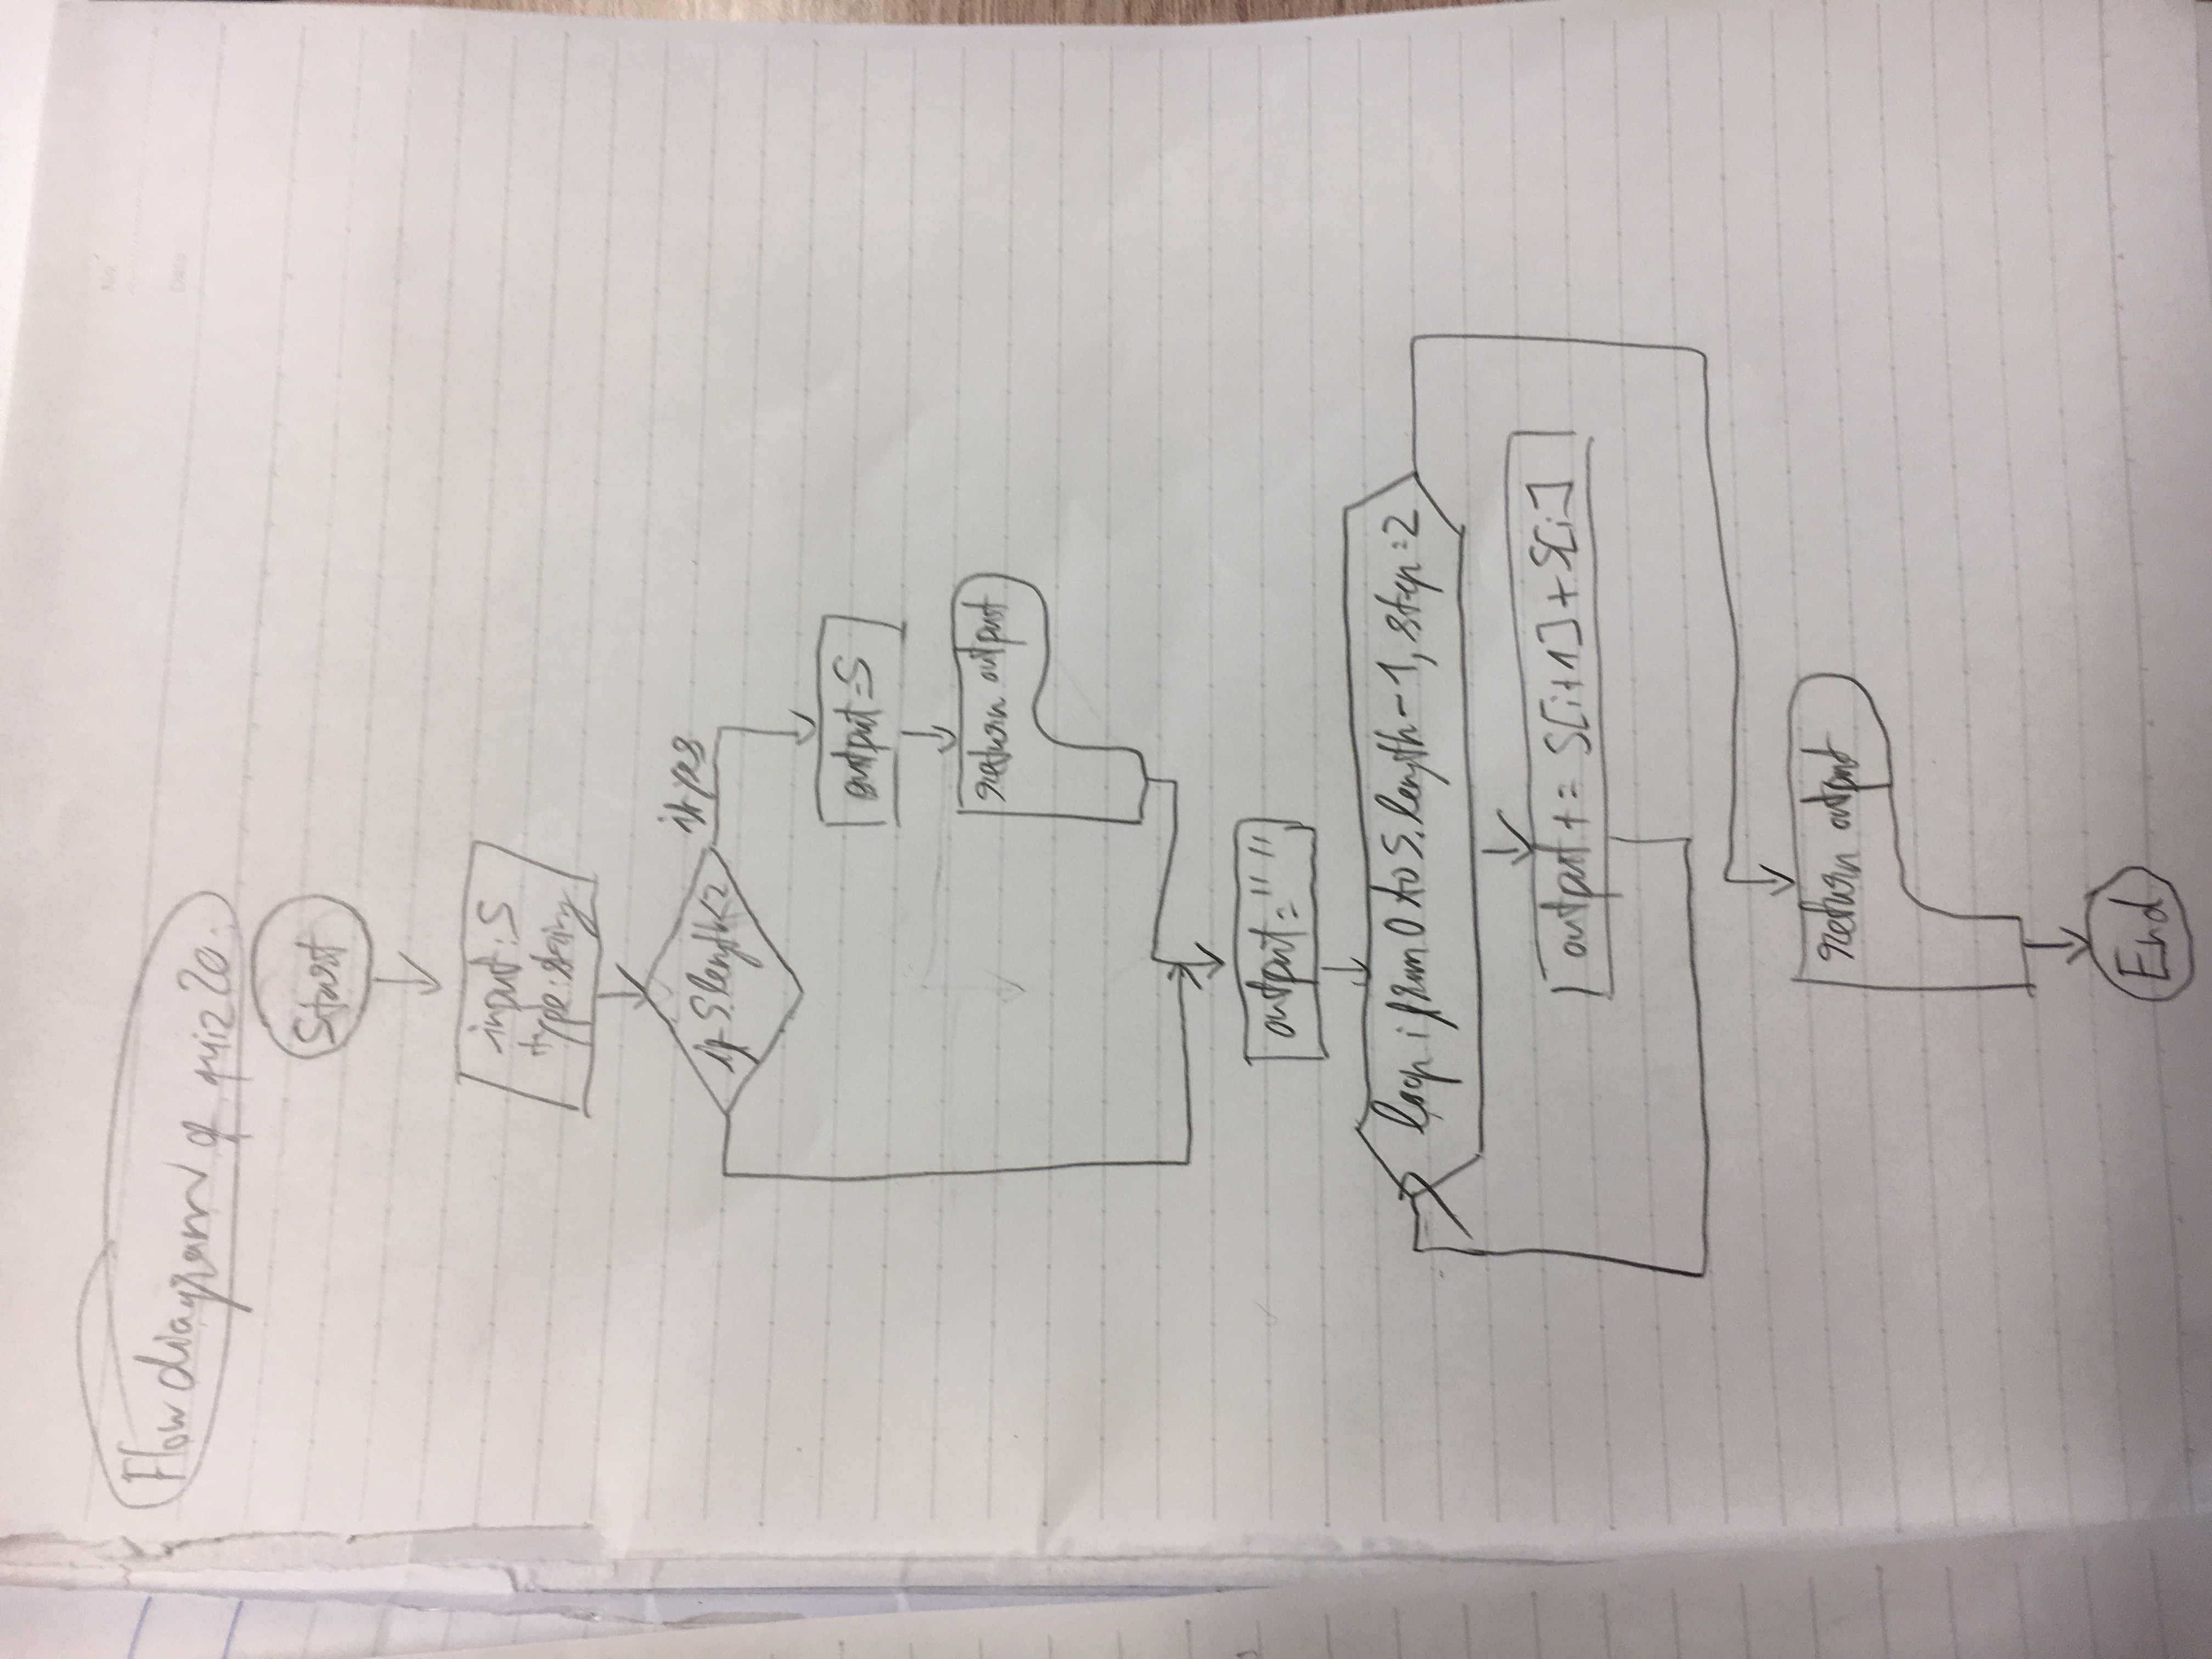 Flow diagram of quiz 20.
Start
input: S
type: string
if S.length<2
if yes
output=S
return output
output=" "
loop i from 0 to S.length-1, step=2
output += S[i+1]+S[i]
return output
End